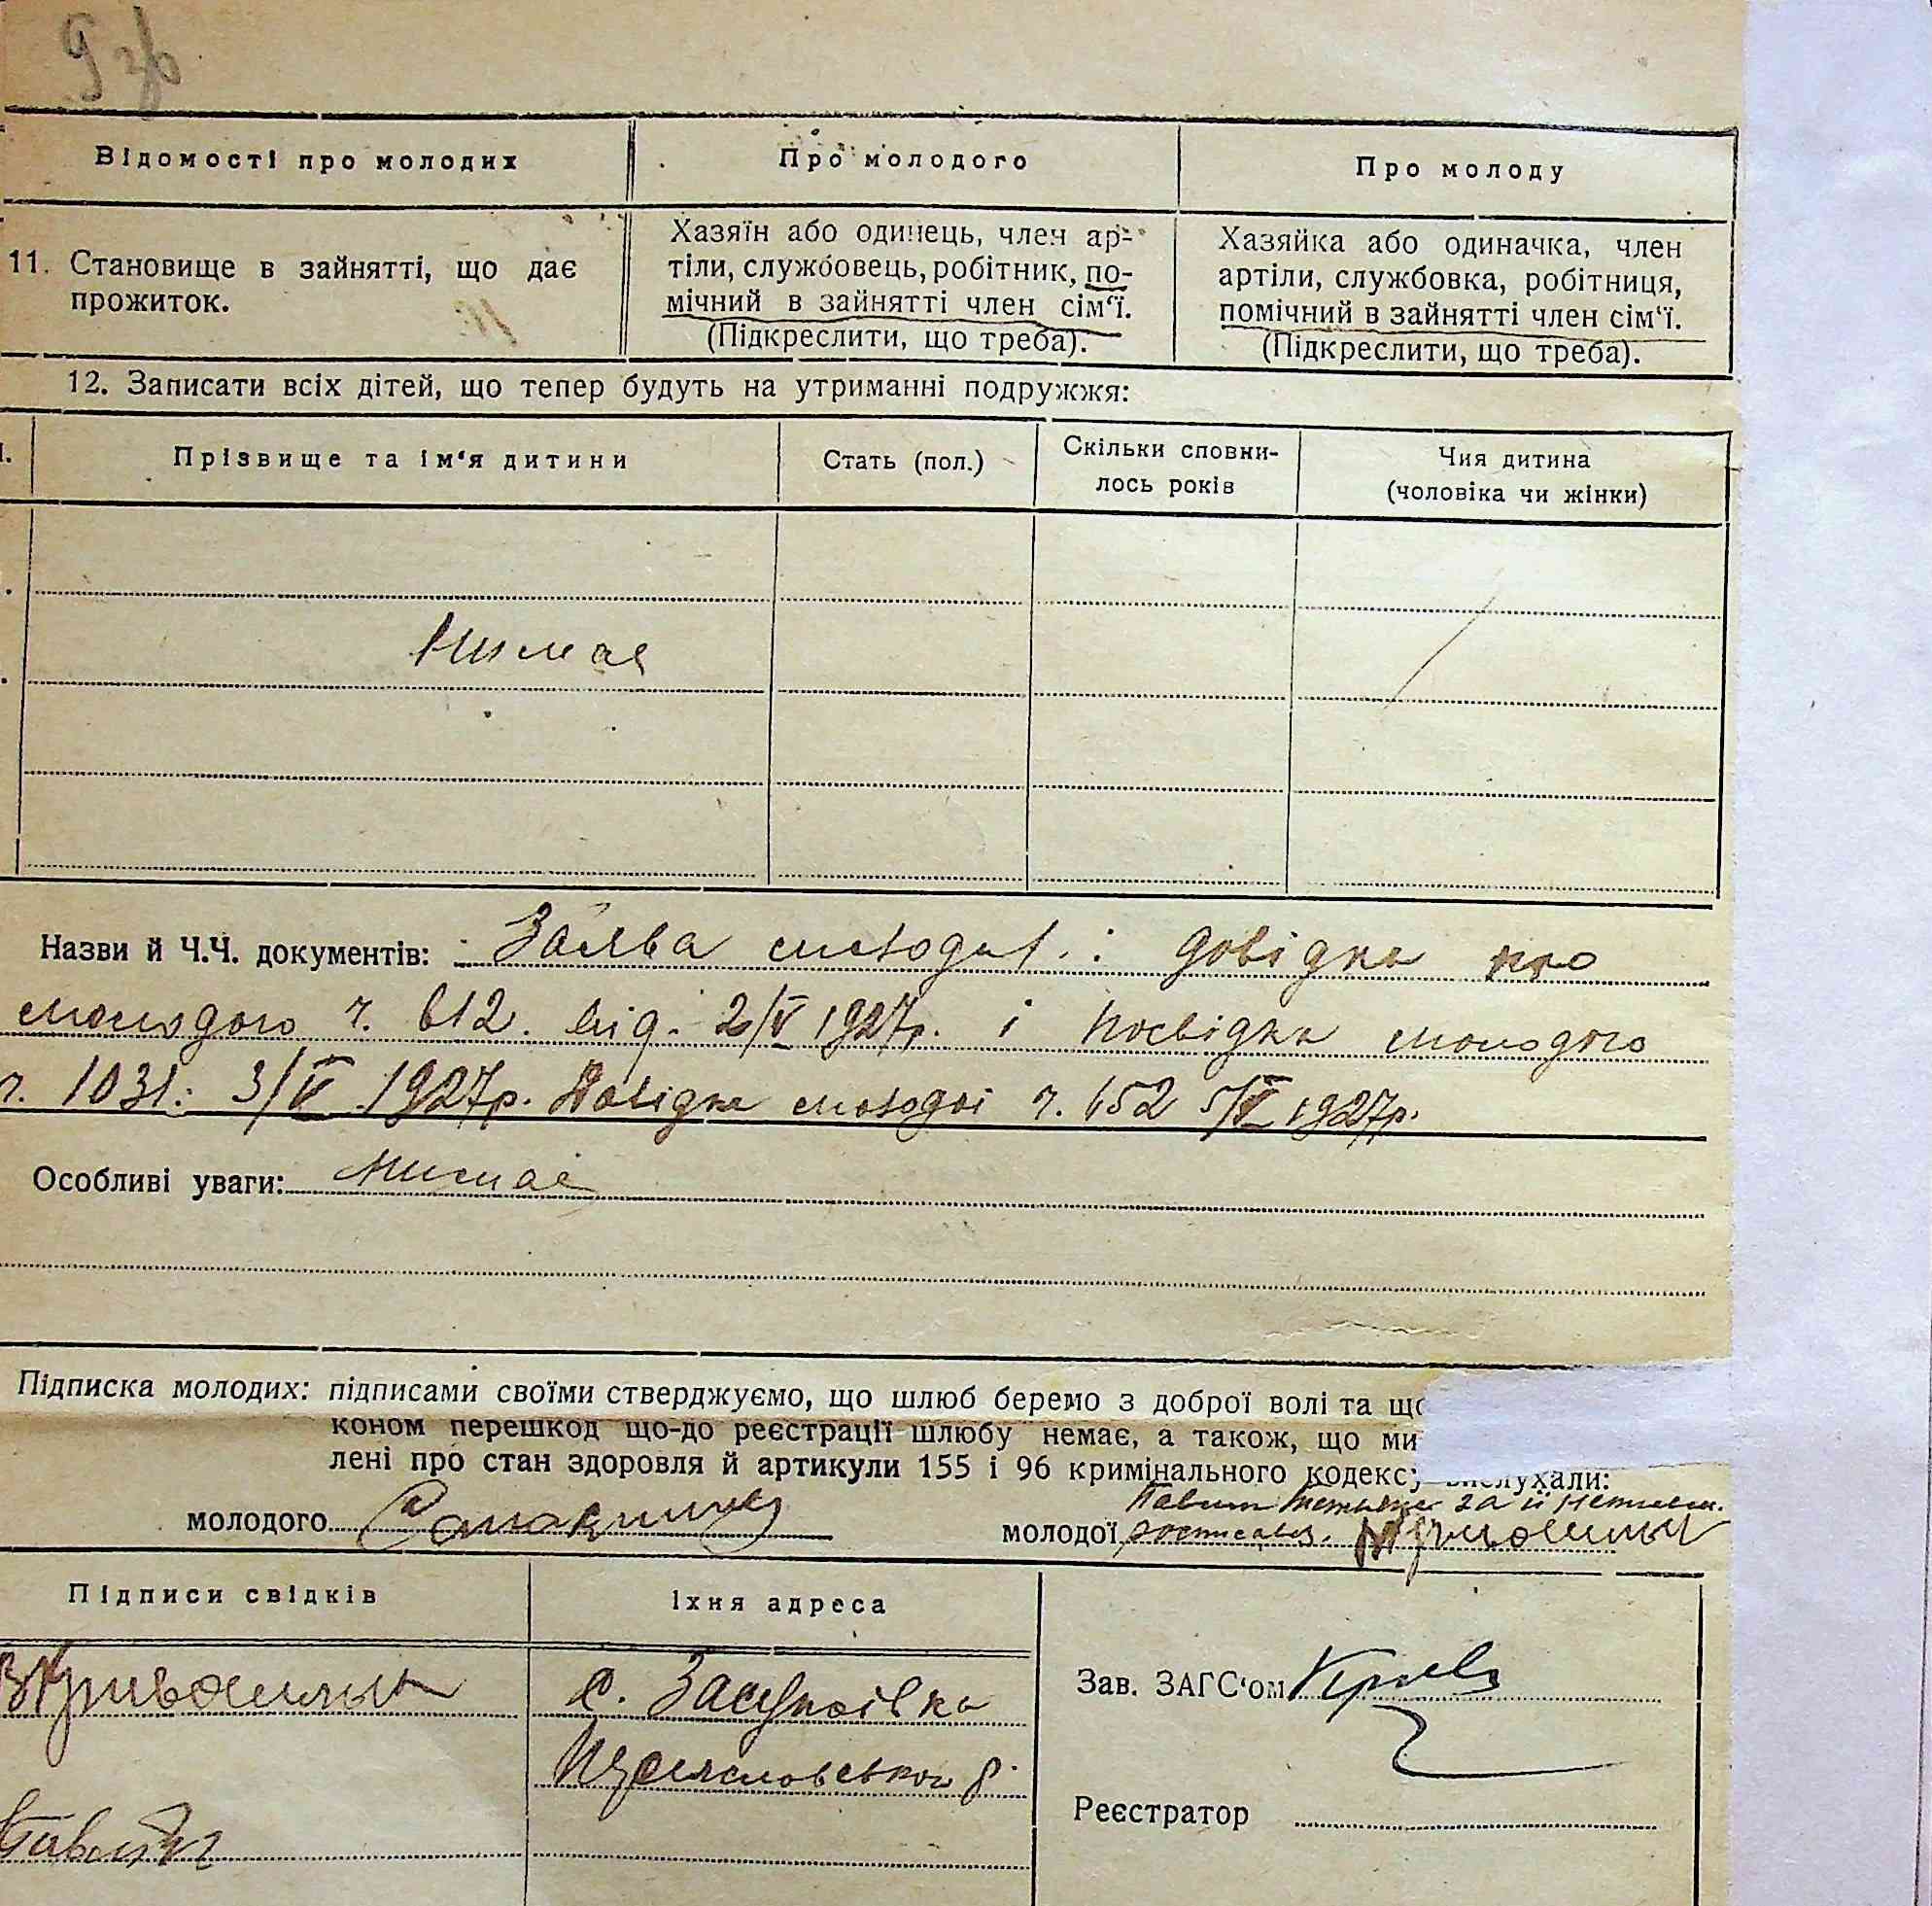 9 зв
Відомості про молодих
Про молодого
Про молоду
11. Становище в зайнятті, що дає
прожиток.
Хазяїн або одинець, член ар-
тіли, службовець, робітник, по-
мічний в зайнятті член сім‘ї.
(Підкреслити, що треба).
Хазяйка або одиначка, член
артіли, службовка, робітниця,
помічний в зайнятті член сім‘ї.
(Підкреслити, що треба).
12. Записати всіх дітей, що тепер будуть на утриманні подружжя:
Прізвище та ім‘я дитини
Стать (пол.)
Скільки сповни-
лось років
Чия дитина
(чоловіка чи жінки)
Нимає
Назви й Ч.Ч. документів: Заява молодих : довідка про
молодого ч. 612. від. 2/V 1927р. і посвідка молодого
ч. 1031. 3/V 1927р. Довідка молодої ч. 652 5/V 1927р.
Особливі уваги: Нимає
Підписка молодих: підписами своїми стверджуємо, що шлюб беремо з доброї волі та що
коном перешкод що-до реєстрації шлюбу немає, а також, що ми
лені про стан здоровля й артикули 155 і 96 кримінального кодексу вислухали:
молодого
молодої
за її
Підписи свідків
Їхня адреса
с. Засупоївка
Зав. ЗАГС‘ом
Реєстратор